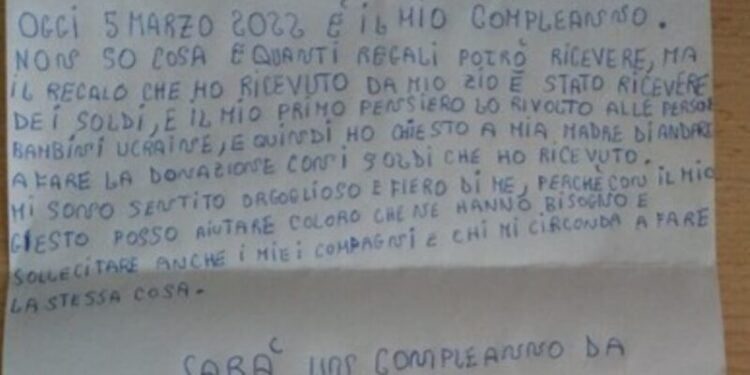 OGGI 5 MARZO 2022 È IL MIO COMPLEANNO.
NON SO COSA E QUANTI REGALI POTRÒ RICEVERE, MA
IL REGALO CHE HO RICEVUTO DA MIO ZIO È STATO RICEVERE
DEI SOLDI, E IL MIO PRIMO PENSIERO LO RIVOLTO ALLE PERSONE
BAMBINI UCRAINE, E QUINDI HO CHIESTO A MIA MADRE DI ANDARE
A FARE LA DONAZIONE CON I SOLDI CHE HO RICEVUTO.
MI SONO SENTITO ORGOGLIOSO E FIERO DI ME, PERCHÈ CON IL MIO
GIESTO POSSO AIUTARE COLORO CHE NE HANNO BISOGNO E
SOLLECITARE ANCHE I MIEI COMPAGNI E CHI MI CIRCONDA A FARE
LA STESSA COSA.
SARÀ UN COMPLEANNO DA